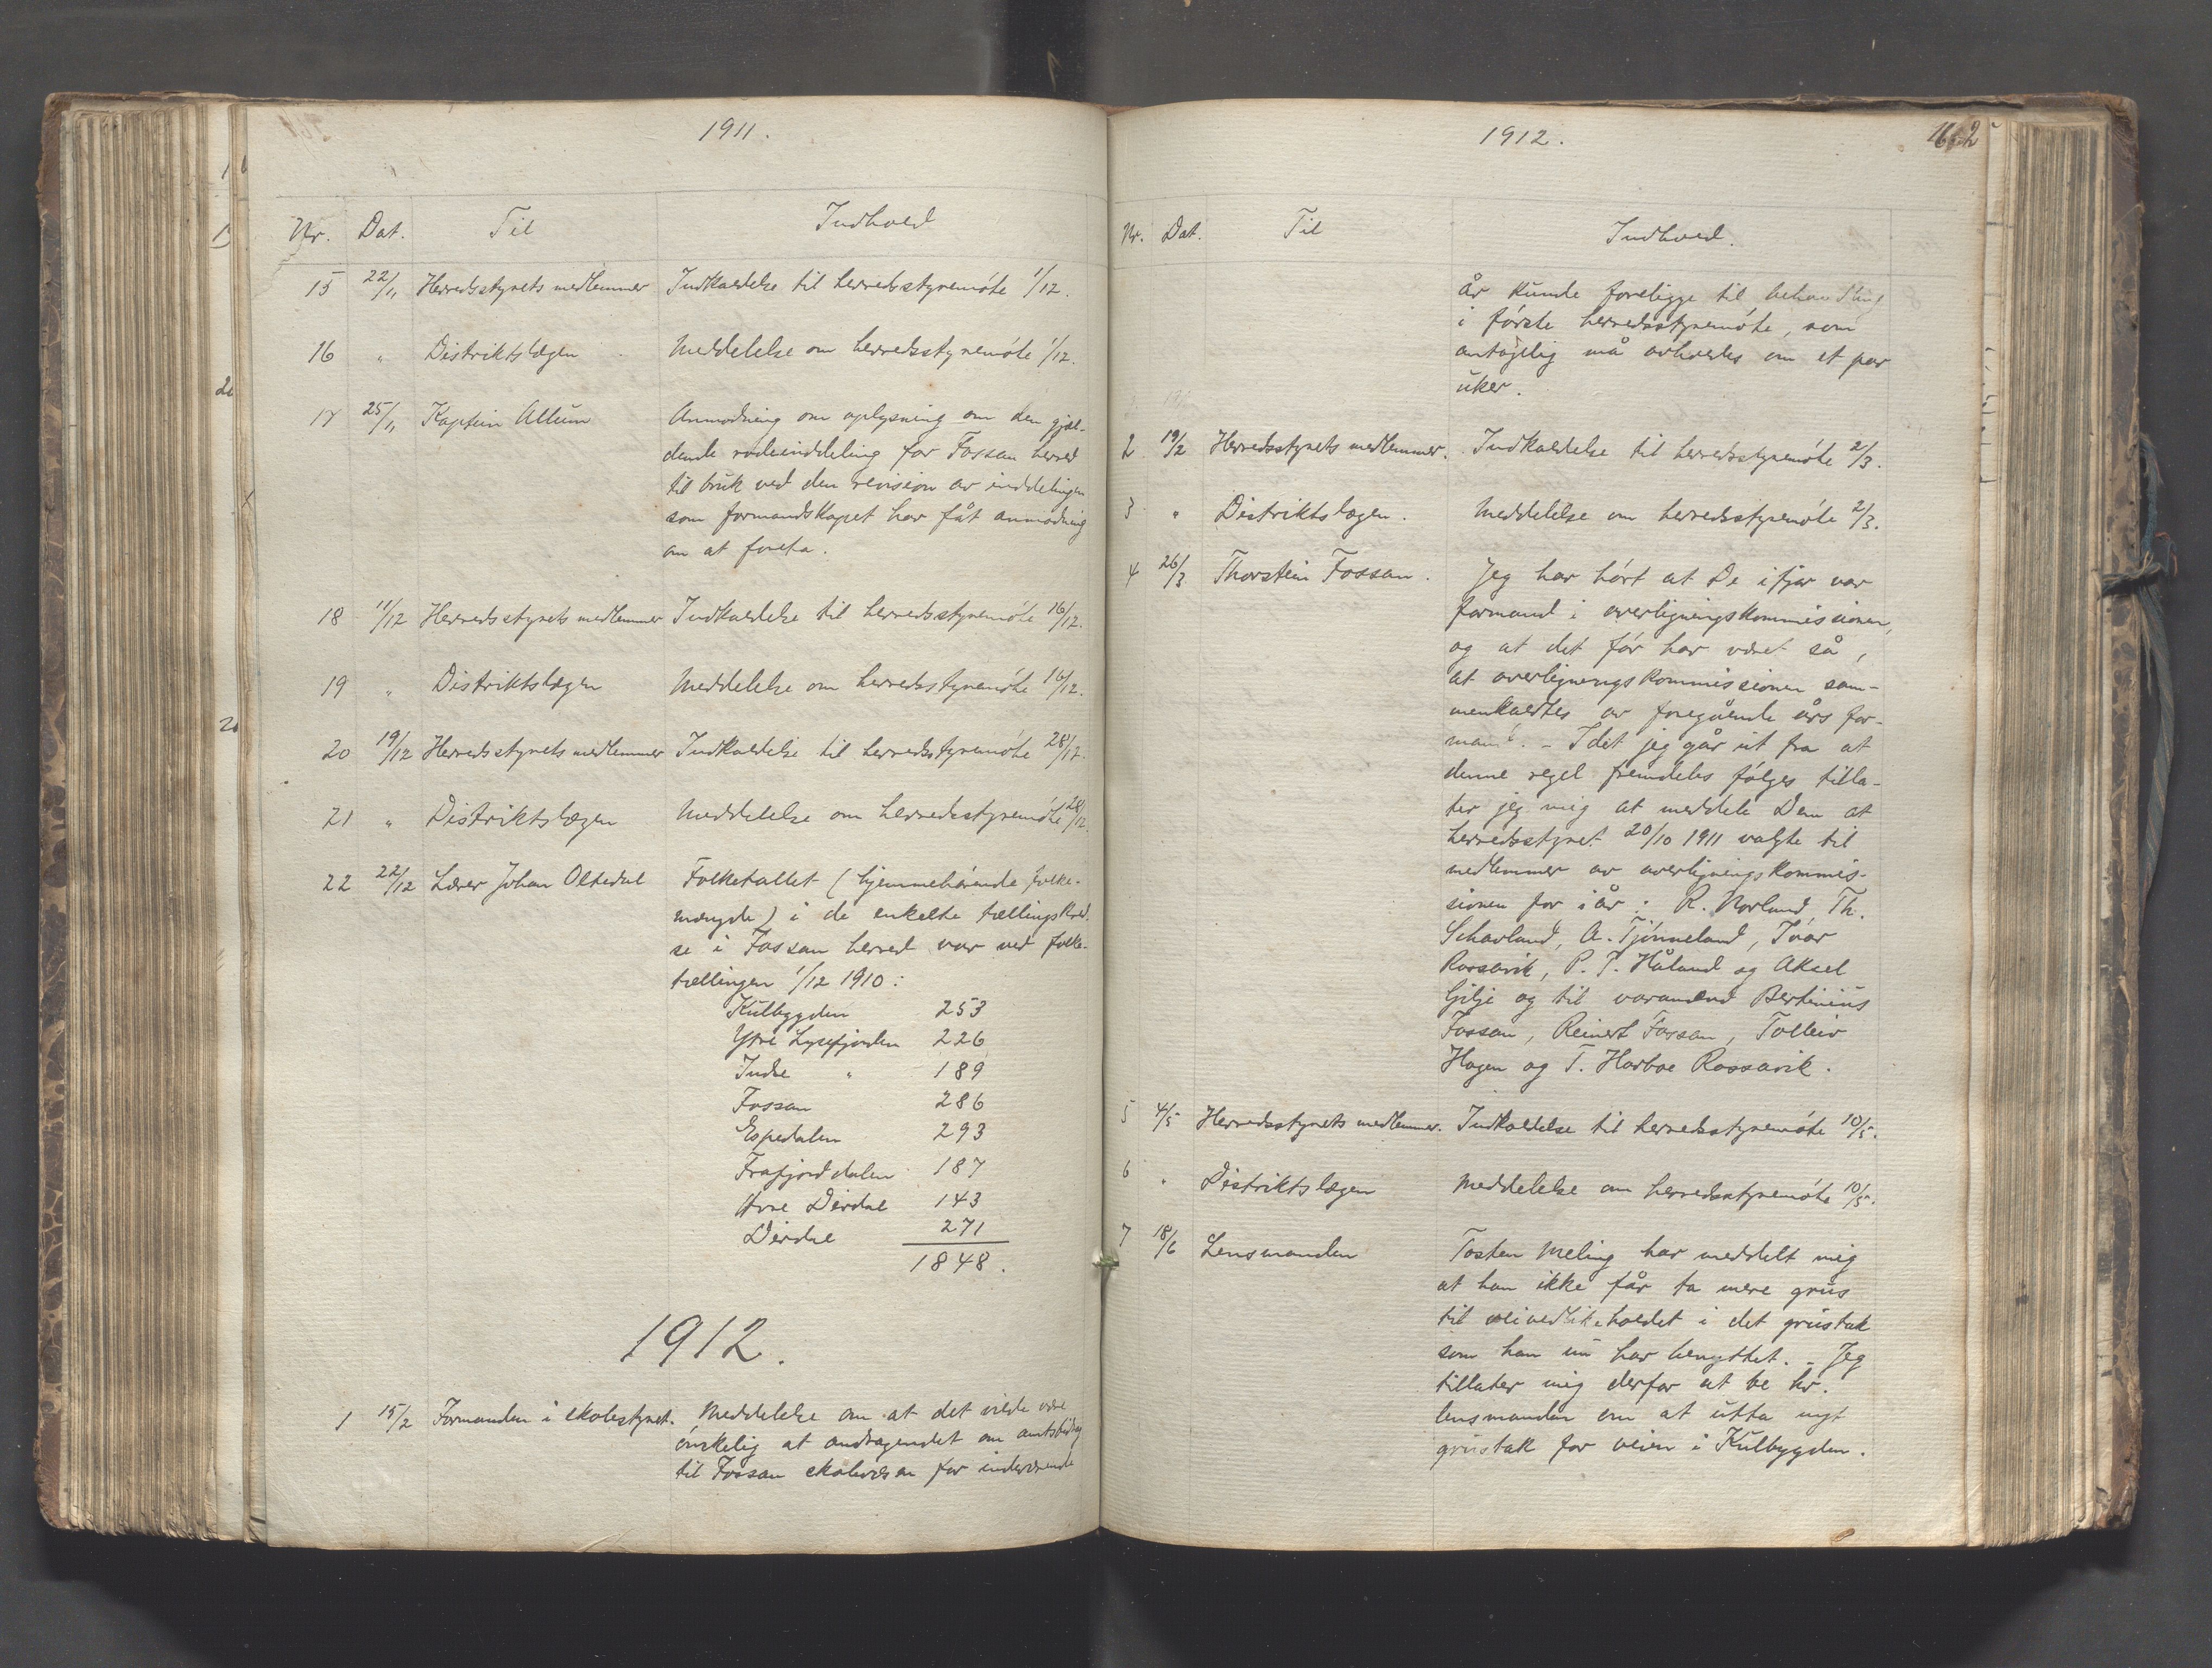 1911.
Nr. Dat. Til Indhold
15 22/11 Herredsstyrets medlemmer Indkaldelse til herredsstyremöte 1/12.
16 " Distriktslægen Meddelelse om herredsstyremöte 1/12.
17 25/11 Kaptein Allum Anmodning om oplysning om den gjæl-
dende rodeinddeling for Fossan herred
til bruk ved den revision av inddelingen
som formandskapet har fåt anmodning
om at foreta.
18 11/12 Herredsstyrets medlemmer Indkaldelse til herredsstyremöte 16/12.
19 " Distriktslægen Meddelelse om herredsstyremöte 16/12.
20 19/12 Herredsstyrets medlemmer Indkaldelse til herredsstyremöte 28/12.
21 " Distriktslægen Meddelelse om herredsstyremöte 28/12.
22 22/12 Lærer Johan Oltedal Folketallet (hjemmehörende folke-
mængde) i de enkelte tællingskred-
se i Fossan herred var ved folke-
tællingen 1/12 1910:
Kulbygden 253
Ytre Lysefjorden 226
Indre " 189
Fossan 286
Espedalen 293
Frafjorddalen 187
Øvre Dirdal 143
Dirdal 271
1848.
1912.
1 15/2 Formanden i skolestyret. Meddelelse om at det vilde være
önskelig at andragendet om amtsbidrag
til Fossan skolevæsen for indeværende
1912.
162
Nr. Dat. Til Indhold.
år kunde foreligge til behandling
i förste herredsstyremöte, som
antagelig må avholdes om et par
uker.
2 19/2 Herredsstyrets medlemmer. Indkaldelse til herredsstyremöte 2/3.
3 " Distriktslægen. Meddelelse om herredsstyremöte 2/3.
4 26/3 Thorstein Fossan. Jeg har hört at De ifjor var
formand i overligningskommissionen,
og at det för har været så,
at overligningskommissionen sam-
menkaldtes av foregående års for-
mand. - Idet jeg går ut fra at
denne regel fremdeles fölges tilla-
ter jeg mig at meddele Dem at
herredsstyret 20/10 1911 valgte til
medlemmer av overligningskommis-
sionen for iår: R. Norland, Th.
Schavland, A. Tjönneland, Ivar
Rossavik, P. T. Håland og Aksel
Gilje og til varamænd Bertinius
Fossan, Reinert Fossan, Tolleiv
Hagen og T. Harboe Rossavik.
5 4/5 Herredsstyrets medlemmer. Indkaldelse til herredsstyremöte 10/5.
6 " Distriktslægen Meddelelse om herredsstyremöte 10/5.
7 18/6 Lensmanden Tosten Meling har meddelt mig
at han ikke får ta mere grus
til veivedlikeholdet i det grustak
som han nu har benyttet. - Jeg
tillater mig derfor at be hr.
lensmanden om at utta nyt
grustak for veien i Kulbygden.